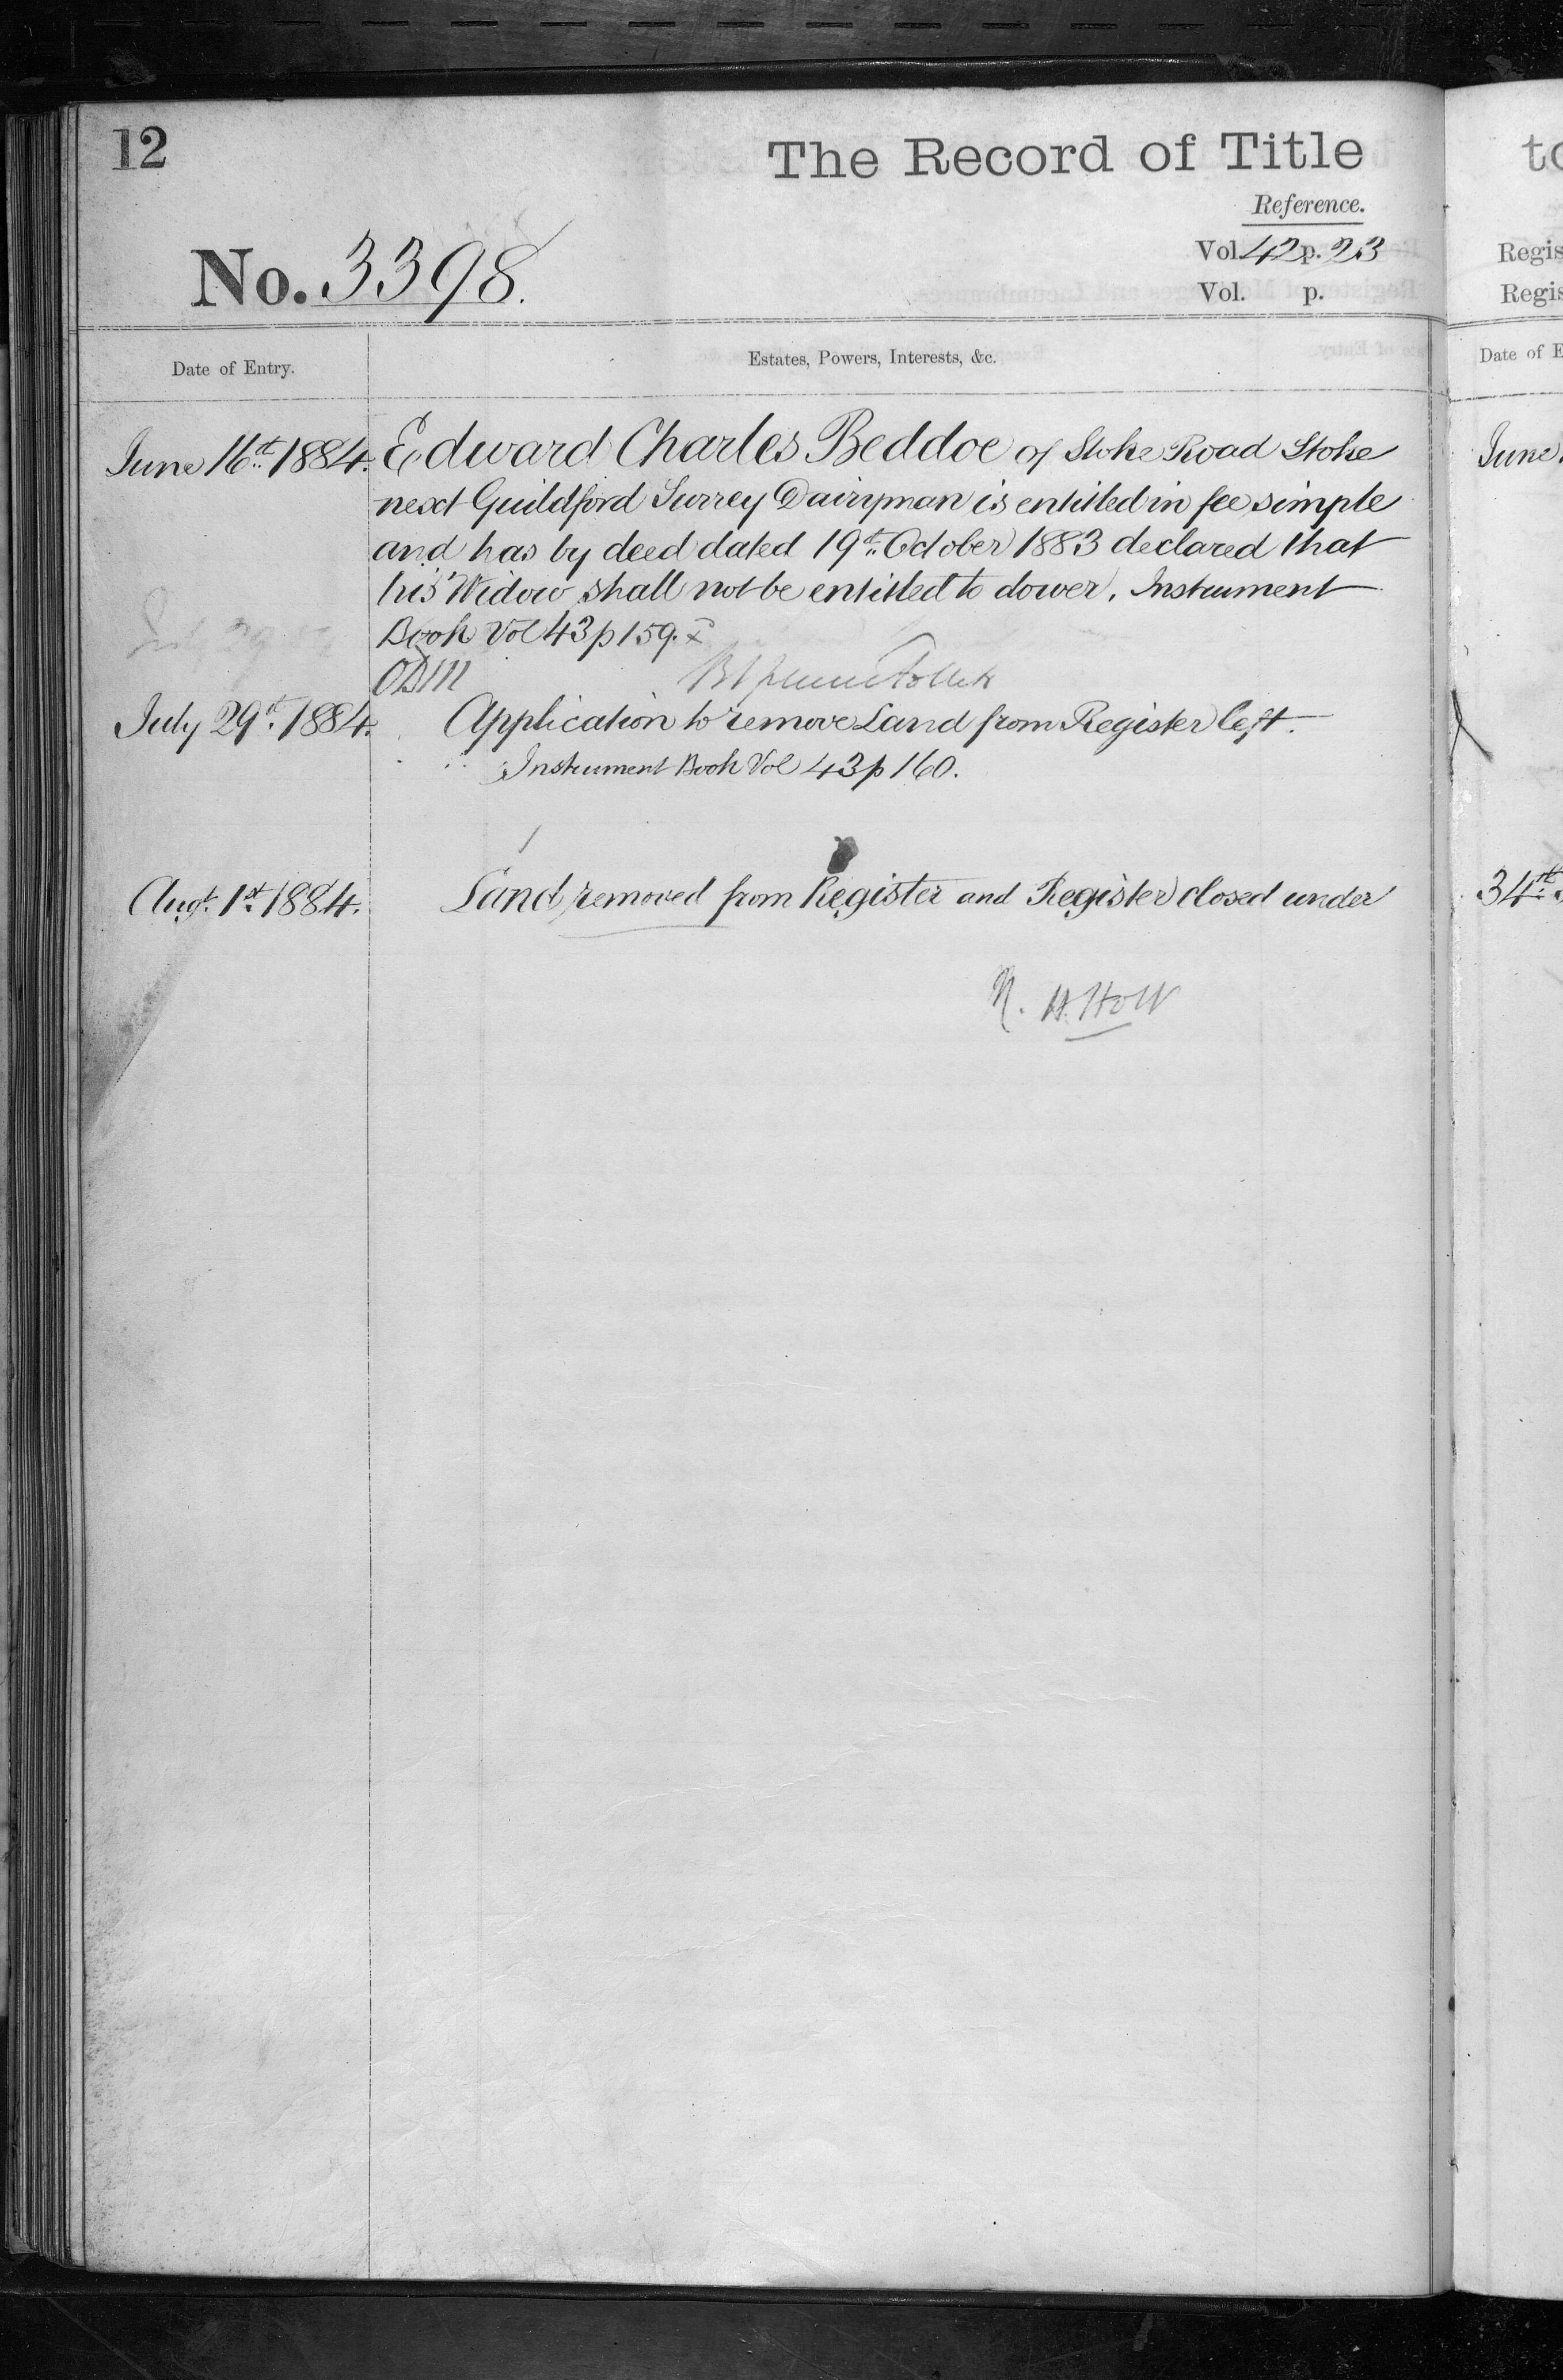 12
The Record of Title
Reference.
Vol. 42 p. 23
Vol. p.
No. 3398.
Date of Entry.
Estates, Powers, Interests, &c.
June 16th 1884. Edward Charles Beddoe of Stoke Road Stoke
next Guildford Surrey Dairyman is entitled in fee simple
and has by deed dated 19th October 1883 declared that
his Widow shall not be entitled to dower. Instrument
Book Vol 43 p 159.
July 29th 1884. Application to remove Land from Register left.
Instrument Book Vol 43 p 160.
Augt. 1st 1884. Land removed from Register and Register closed under
H. Holt
to
Regis
Regis
Date of E
June
34th